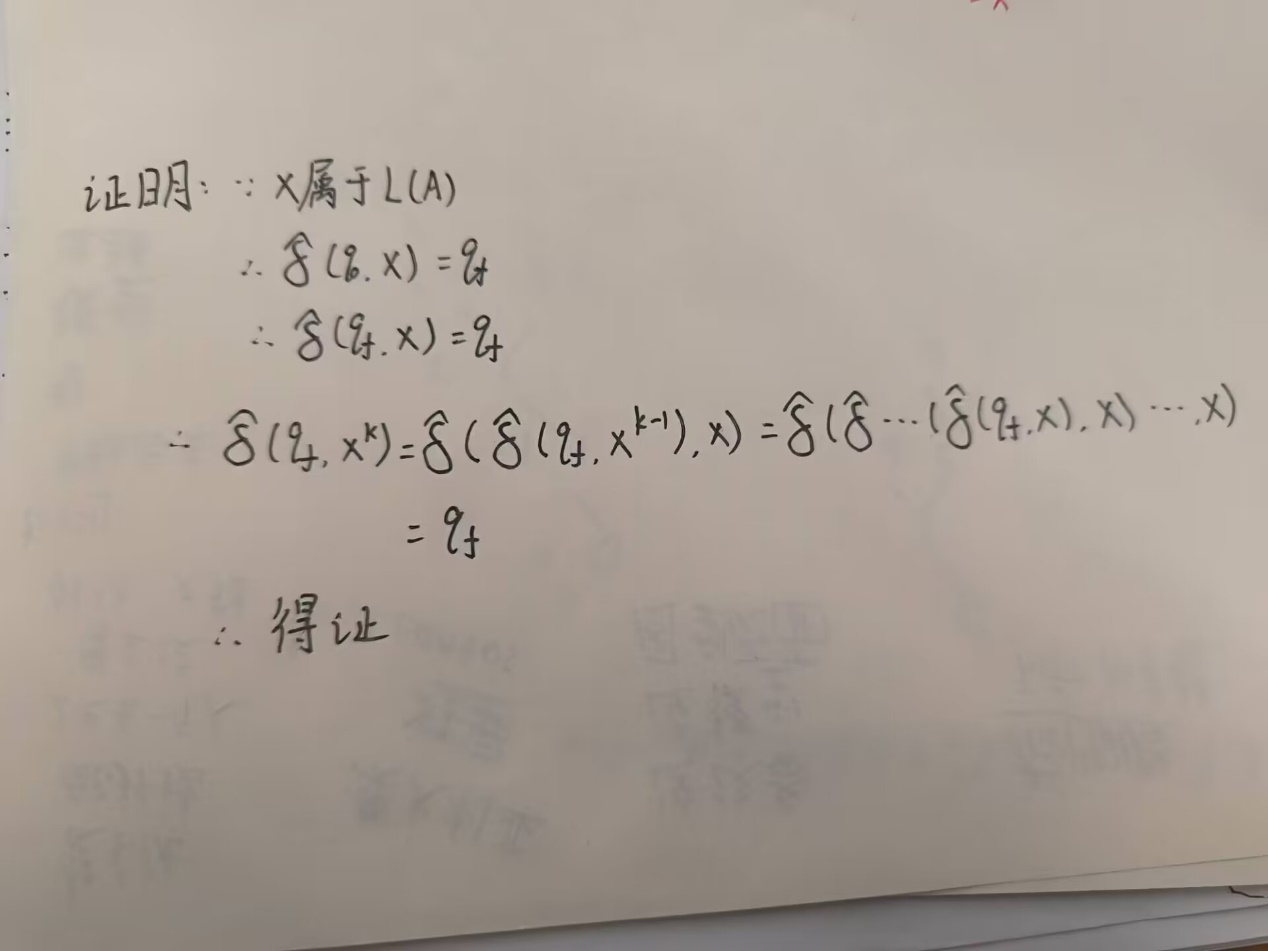 证明: ∵ x属于L(A)
∴ δ̂(q₀, x) = q_f
∴ δ̂(q_f, x) = q_f
∴ δ̂(q_f, x^k) = δ̂(δ̂(q_f, x^{k-1}), x) = δ̂(δ̂…(δ̂(q_f, x), x)…, x)
= q_f
∴ 得证